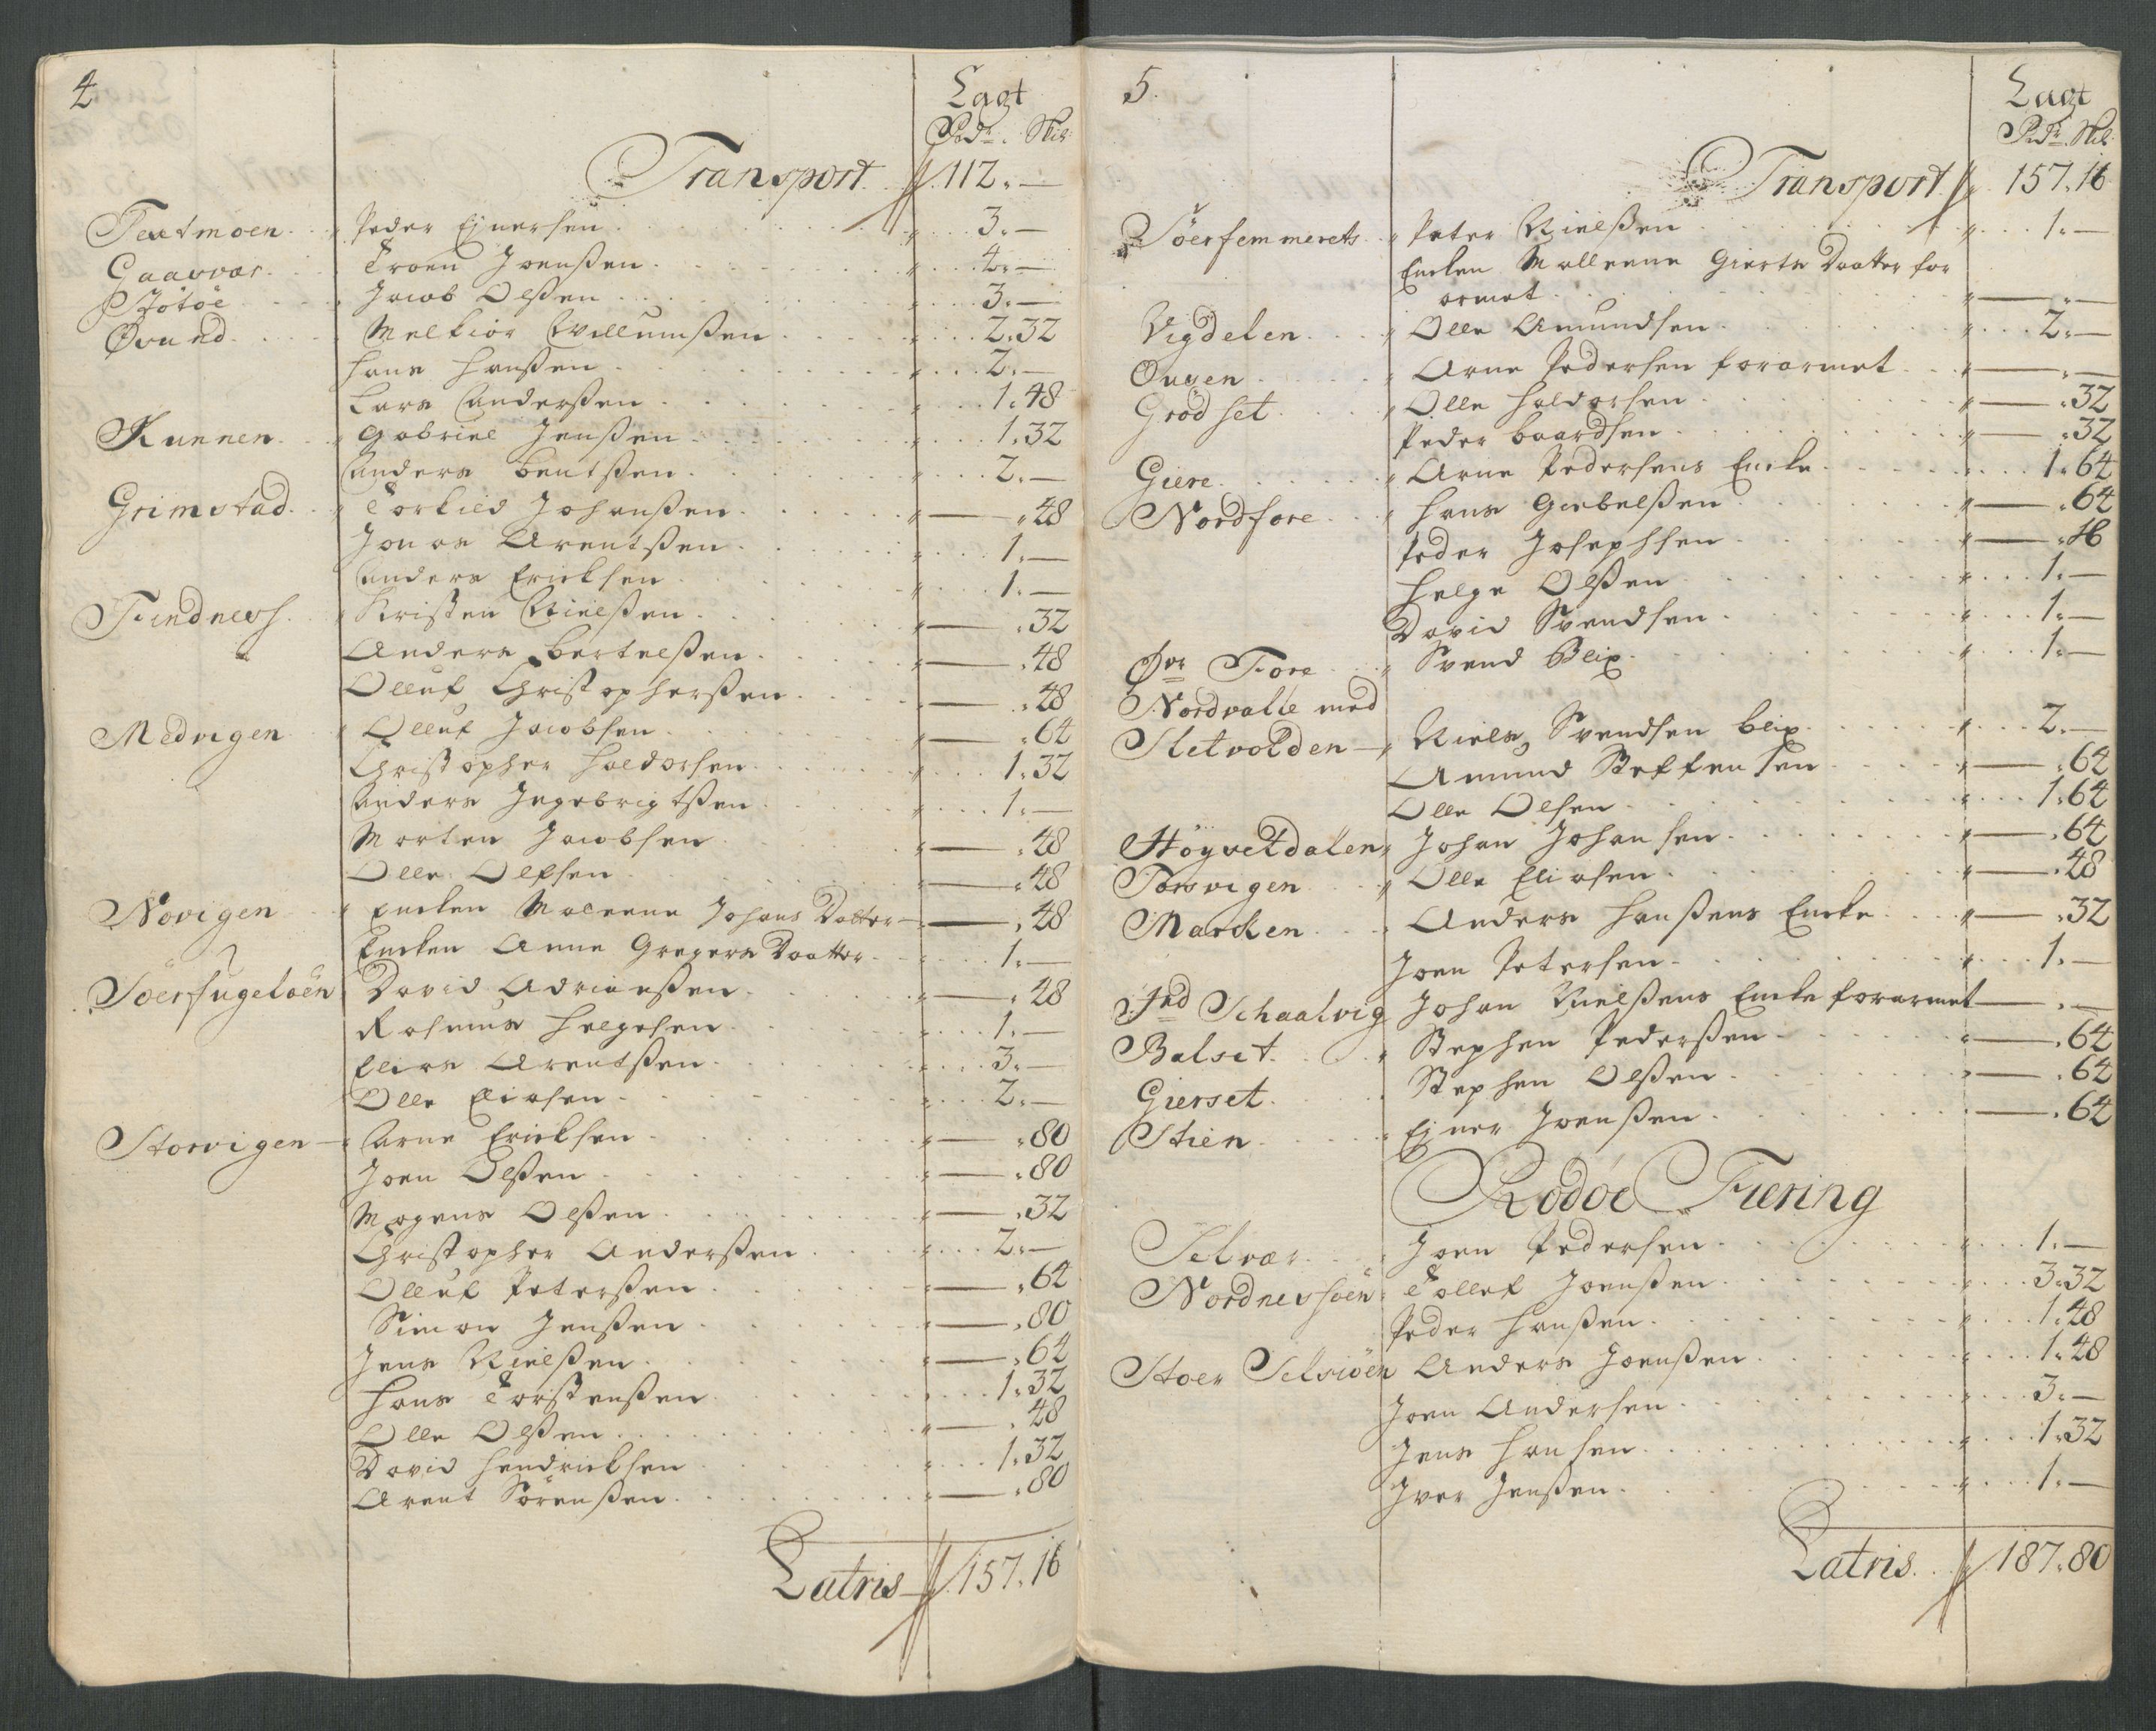 4
Lagt
Rdr. Skil
Transport 112. —
Teutmoen. Peder Ejnersen 3. —
Gaasvær. Troen Joenßen. 4. —
Støtøe Jacob Olßen 3. —
Øvund Melkior Willumßen 2. 32
Hans Hanßen 2. —
Lars Anderßen 1. 48
Kunnen. Gabriel Jenßen 1. 32
Anders Bentßen. 2. —
Grimstad. Torkild Johanßen — 48
Jonas Arentßen 1. —
Anders Ericksen 1. —
Findnes. Kristen Nielßen. — 32
Anders Bertelßen — 48
Olluf Christopherßen — 48
Medvigen Olluf Jacobsen — 64
Christopher Haldorsen 1. 32
Anders Ingebrigtßen 1. —
Morten Jacobsen — 48
Olle Olsen — 48
Novigen Encken Maleene Johans Datter — 48
Encken Anne Gregers Daatter 1. —
Söerfugelöen David Adrianßen — 48
Rasmus Helgesen 1. —
Elias Arentßen. 3. —
Olle Eliasen 2. —
Storvigen — Arne Ericksen — 80
Joen Olßen — 80
Mogens Olßen — 32
Christopher Anderßen 2. —
Olluf Peterßen — 64
Simon Jenßen — 80
Jens Nielßen — 64
Hans Torstenßen 1. 32
Olle Olßen — 48
David Hendricksen 1. 32
Arent Sörenßen. — 80
Latris 157. 16
5.
Lagt
Rdr. Skil
Transport 157. 16
Söerfemmerets Peter Nielßen 1. —
Encken Malleene Gierts Daatter for
armet — . —
Vigdelen Olle Amundsen 2. —
Øugen Arne Pedersen forarmet — . —
Grödset Olle Haldorsen — 32
Peder Baardsen — 32
Giere Arne Pedersens Encke 1. 64
Nordfore Hans Giebelßen — 64
Peder Josephsen — 16
Helge Olßen 1. —
David Svendsen 1. —
Øvr Fore Svend Blix 1. —
Nordvalle med
Sletvolden — Niels Svendsen Blix 2. —
Amund Steffensen — 64
Olle Olsen 1. 64
Höyveldalen Johan Johansen — 64
Torsvigen Olle Eliasen — 48
Marcken Anders Hanßens Encke — 32
Joen Petersen 1. —
Ind Schaalvig Johan Nielßens Encke forarmet — . —
Balset Stephen Pederßen — 64
Gierset Stephen Olßen — 64
Stien Ejner Joenßen — 64
Rödöe Fiering
Selvær Joen Pedersen 1. —
Nordnesöen Tollef Joenßen 3. 32
Peder Hanßen 1. 48
Stoer Selsiöen Anders Joenßen 1. 48
Joen Andersen 3. —
Jens Hansen 1. 32
Iver Jenßen 1. —
Latris. 187. 80